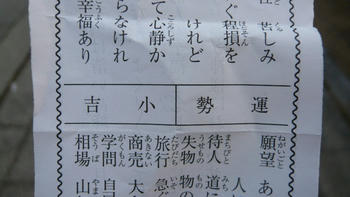 苦しみ
ぐ程損を
けれど
て心静か
らなけれ
幸福あり
運勢
小吉
願望 あ
人
待人 道に
失物 物の
旅行 急ぐ
商売 大
学問 自
相場 山